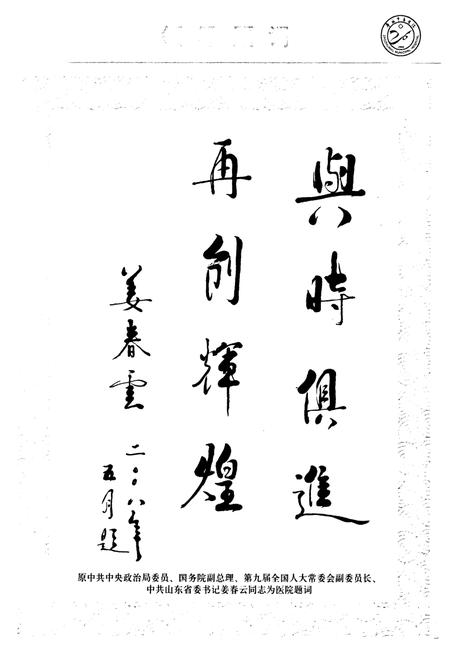 與時俱進
再創輝煌
姜春雲
二〇〇八年
五月題
原中共中央政治局委员、国务院副总理、第九届全国人大常委会副委员长、
中共山东省委书记姜春云同志为医院题词